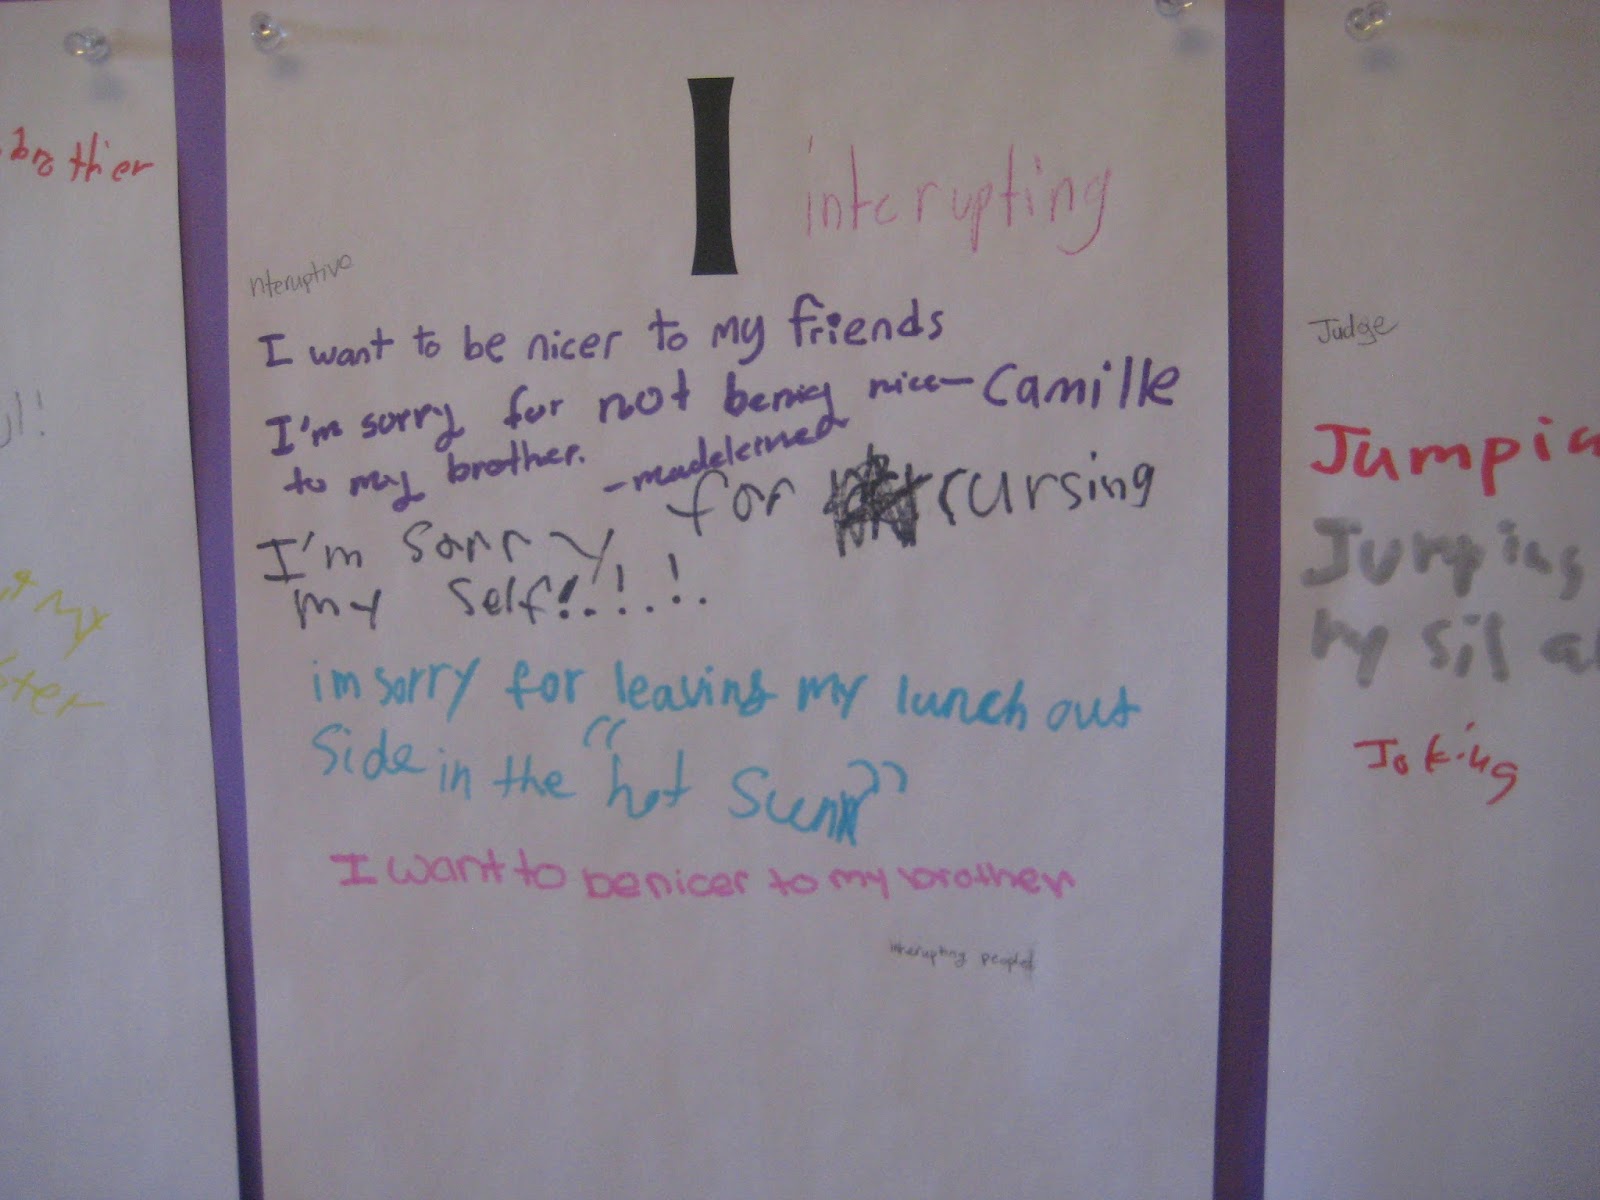 brother
My
I
interupting
nteruptive
I want to be nicer to my friends
I'm sorry for not being nice - Camille
to my brother. - madeleine
I'm sorry for cursing
my self!.!.!.
im sorry for leaving my lunch out
side in the "hot Sunn"
I want to be nicer to my brother
interupting people
Judge
Jumpin
Jumping
my sil
Joking